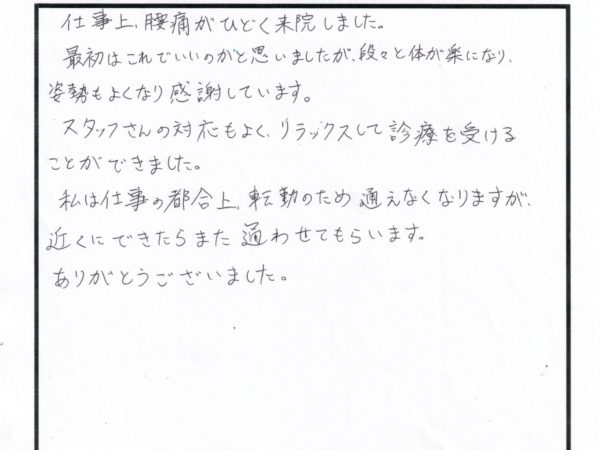 仕事上、腰痛がひどく来院しました。
最初はこれでいいのかと思いましたが、段々と体が楽になり、
姿勢もよくなり感謝しています。
スタッフさんの対応もよく、リラックスして診療を受ける
ことができました。
私は仕事の都合上、転勤のため通えなくなりますが、
近くにできたらまた通わせてもらいます。
ありがとうございました。